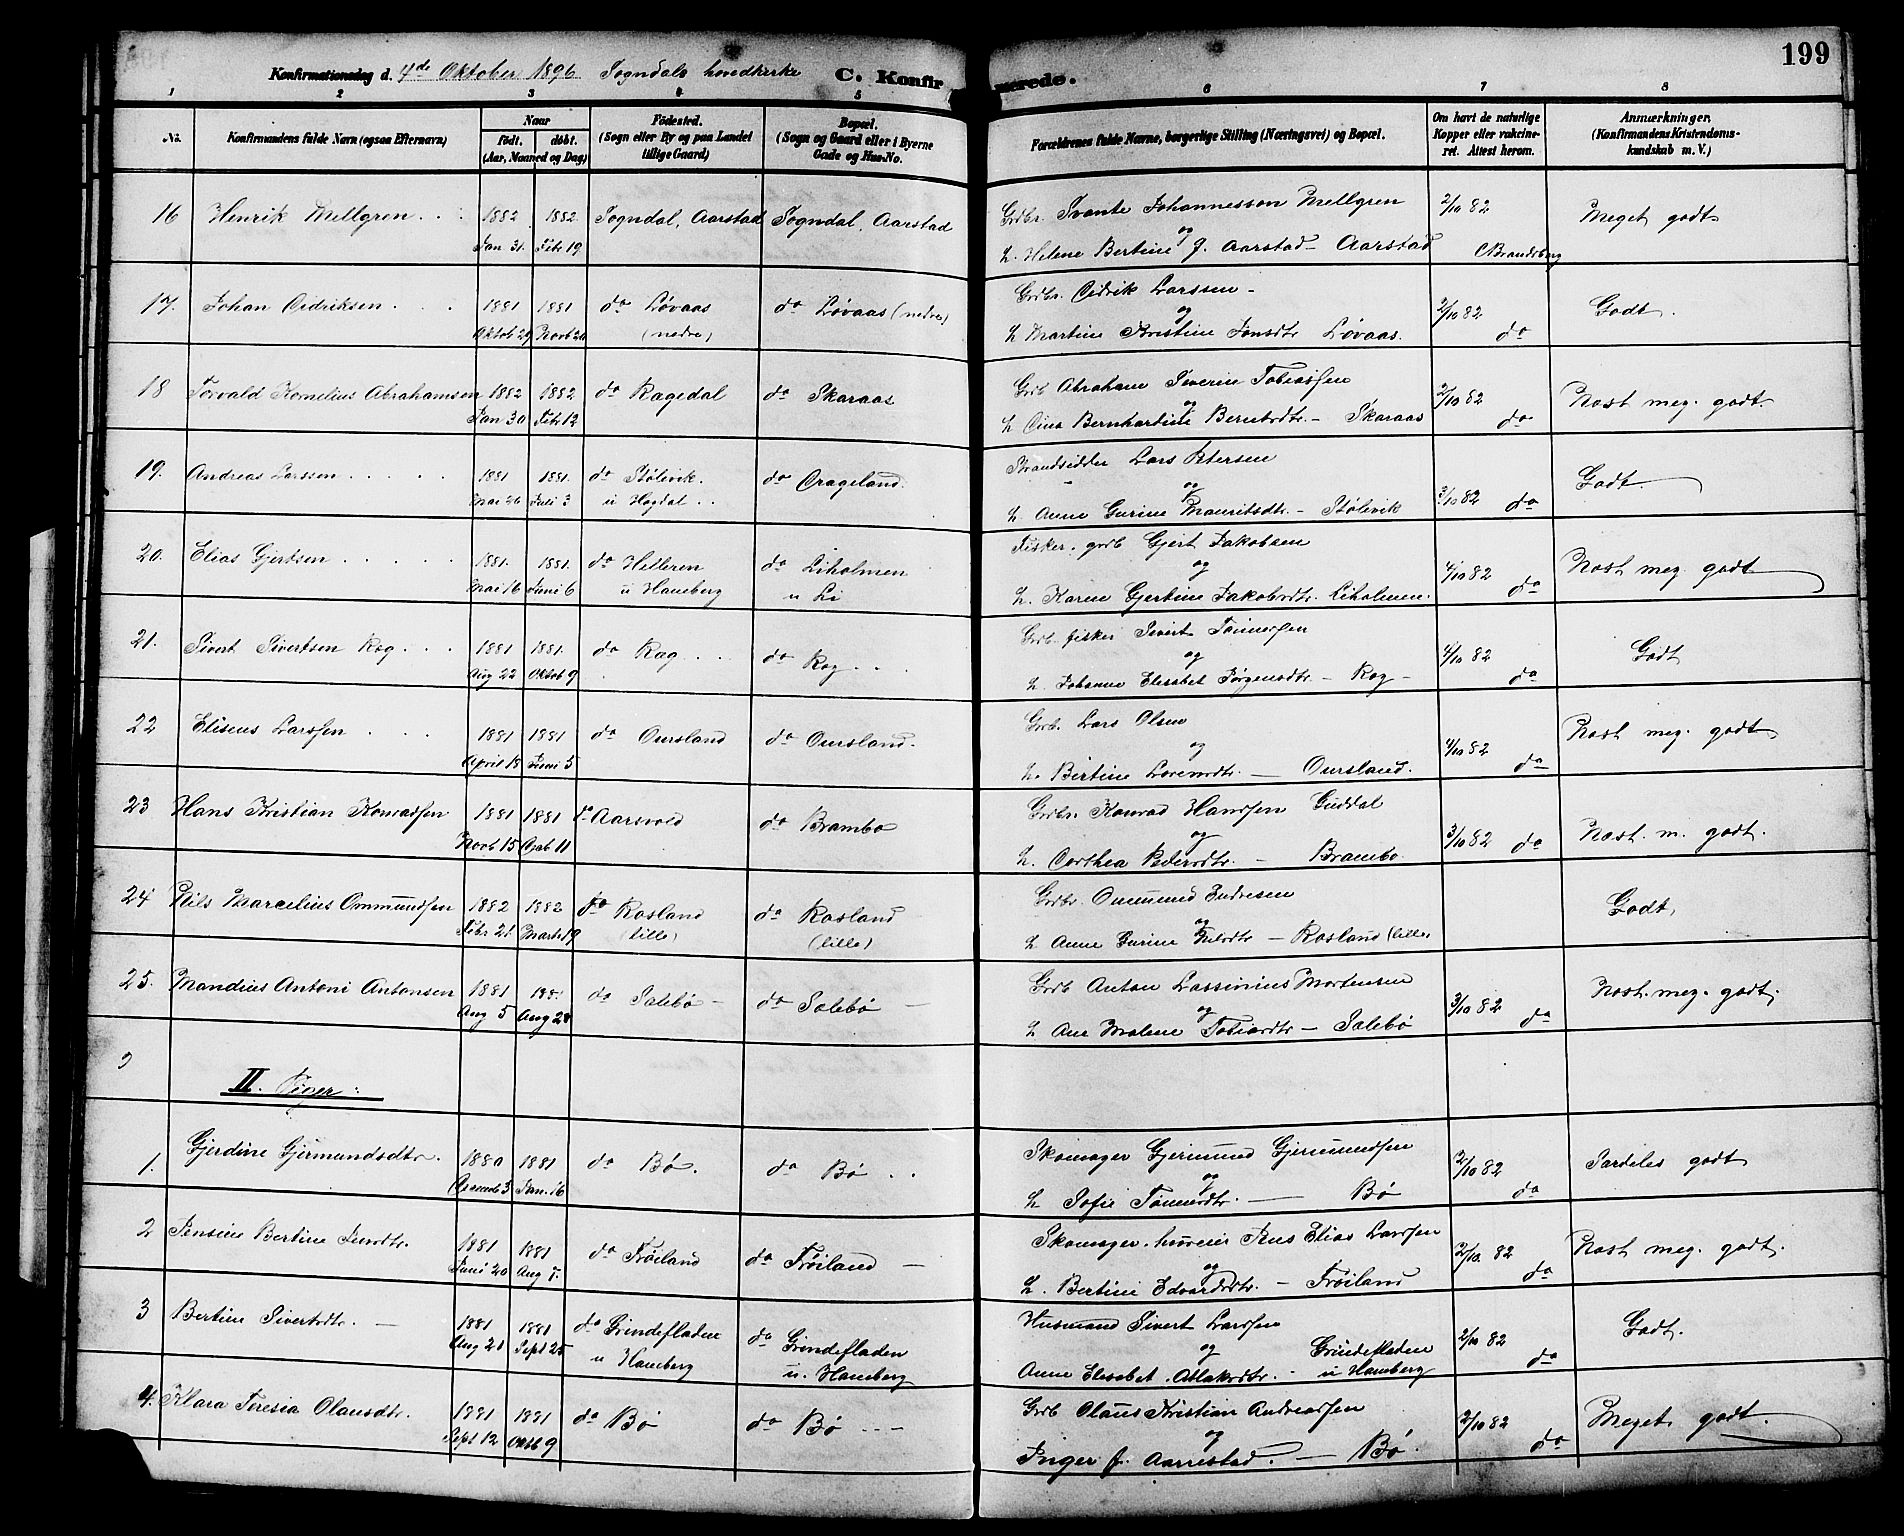 199
Konfirmationsdag d. 4de Oktober 1896 Sogndals hovedkirke C. Konfirmerede.
1 2 3 4 5 6 7 8
No. Konfirmandens fulde Navn (ogsaa Efternavn) Naar födt. döbt. (Aar, Maaned og Dag) Födested. (Sogn eller By og paa Landet tillige Gaard) Bopæl. (Sogn og Gaard eller i Byerne Gade og Hus-No. Forældrenes fulde Navne, borgerlige Stilling (Næringsvei) og Bopæl. Om havt de naturlige Kopper eller vakcineret. Attest herom. Anmærkninger. (Konfirmandens Kristendomskundskab m. V.)
16 Henrik Mellgren 1882 1882 Sogndal, Aarstad Sogndal, Aarstad Grdbr. Svante Johannesson Mellgren 2/10 82 Meget godt
Jan 31. Febr 19 og
h. Helene Bertine f. Aarstad - Aarstad Brandsberg
17. Johan Cedriksen 1881 1881 do Løvaas do Løvaas (nedre) Grdbr. Cedrik Larssen - 2/10 82 Godt.
Oktob 29 Novb 20 (nedre) og
h Martine Kristine Jonsdtr Løvaas. do
18 Torvald Kornelius Abrahamsen 1882 1882 do Rægedal do Skaraas Grdb Abraham Severin Tobiassen 2/10 82 Næst meg. godt.
Jan 30 Febr 12 og
h Bernhartine Berntsdtr. - Skaraas do
19. Andreas Larssen 1881 1881. do Stølsvik. do Drageland. Strandsidder Lars Petersen 3/10 82 Godt
Mai 26 Juli 3 u Hogdal og
h. Anne Gurine Mauritsdtr. - Stølsvik do
20. Elias Gjertsen 1881. 1881. do Helleren do Liholmen Fisker, grdb Gjert Jakobsen 4/10 82 Næst meg. godt
Mai 16 Juni 6 u Haueberg u Li og
h. Karen Gjertine Jakobsdtr. Liholmen. do
21. Sivert Sivertsen Røg 1881 1881. do Ræg do Rog Grdb. fisker Sivert Tønnessen 4/10 82 Godt
Aug 22 Oktob 9 og
h. Johanne Elisabet Jørgensdtr. - Rog - do
22 Eliseus Larssen 1881 1881 do Oursland do Oursland. Grdb. Lars Olsen 4/10 82 Næst meg. godt
April 18 Juni 5 og
h. Bertine Lorensdtr. - Oursland. do
23 Hans Kristian Konradsen 1881 1881 do Aarsvold do Brambo Grdbr. Konrad Hanssen Guddal 3/10 82 Næst. m. godt.
Novb 15 Dcb 11 og
h. Dorthea Pedersdtr. - Brambo do
24 Nils Marcelius Ommundsen 1882 1882 do Rosland do Rosland Grdbr. Ommund Endresen Godt,
Febr 21 Marts 19 (lille) (lille) og
h Anne Gurine - Rosland (lille)
25. Mandius Antoni Antonsen 1881 do Salebø - do Salebø - Grdb Anton Lassinius Mortensen 3/10 82 Næst. meg. godt.
Aug 5 Aug 28 og
h Ane Malene Tobiasdtr - Salebø do
II. Piger:
1. Gjerdine Gjermundsdtr. 1880 1881 do Bø. do Bø Skomager Gjermund Gjermundsen 2/10 82 Særdeles godt
Decemb 3 Jan. 16 og
h Sofie Tønnesdtr. - Bø do
2 Jensine Bertine Jensdtr. 1881 1881 do Frøiland do Frøiland - Skomager, huseier Jens Elias Larssen 2/10. 82 Næst meg. godt.
Juni 20 Aug 7. og
h. Bertine Edvardsdtr. - Frøiland do
3 Bertine Sivertsdtr. - 1881 1881 do Grindefladen do Grindefladen Husmand Sivert Larssen 2/10 82 Godt.
Aug 21 Sept 25 u Haneberg u. Haneberg og Grindefladen
Anne Elisabet Aslaksdtr. - u Haneberg do
4. Klara Teresia Olausdtr. 1881 1881 do Bø do Bø - - Grdb Olaus Kristian Andreassen 2/10 82 Meget godt.
Sept 12 Oktb 9 og
Inger f. Aarrestad. - Bø. do